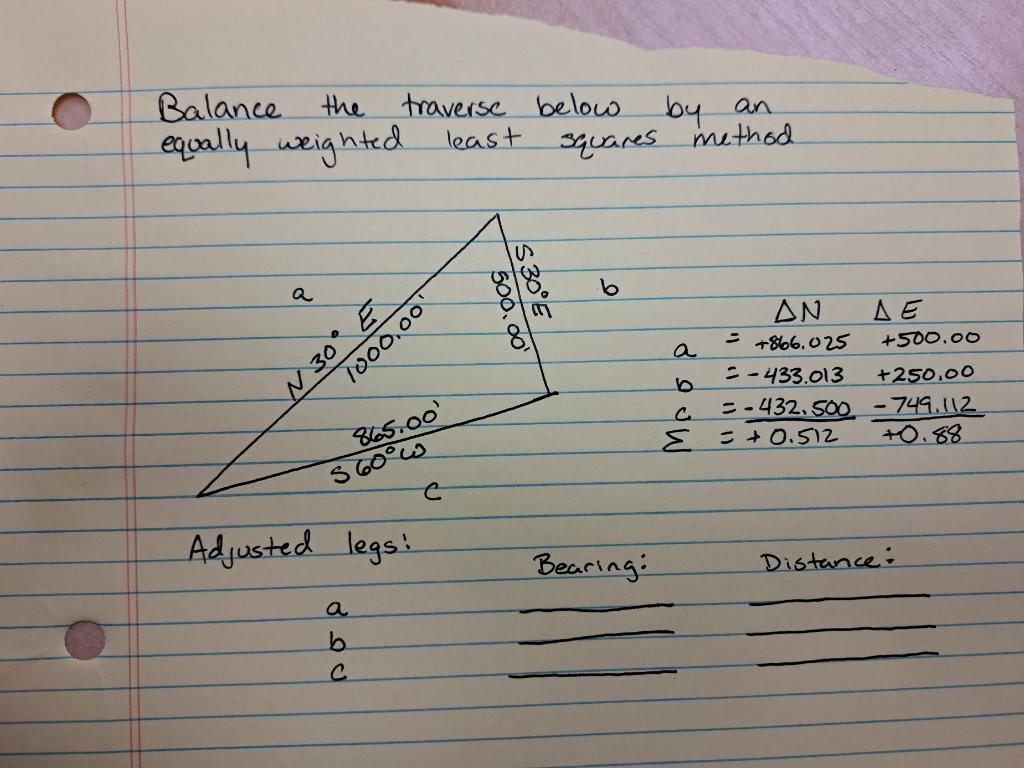 Balance the traverse below by an
equally weighted least squares method
a
N 30° E
1000.00'
S 30° E
500.00'
b
865.00'
S 60° W
c
ΔN ΔE
a = +866.025 +500.00
b = -433.013 +250.00
c = -432.500 -749.112
Σ = +0.512 +0.88
Adjusted legs:
Bearing: Distance:
a
b
c